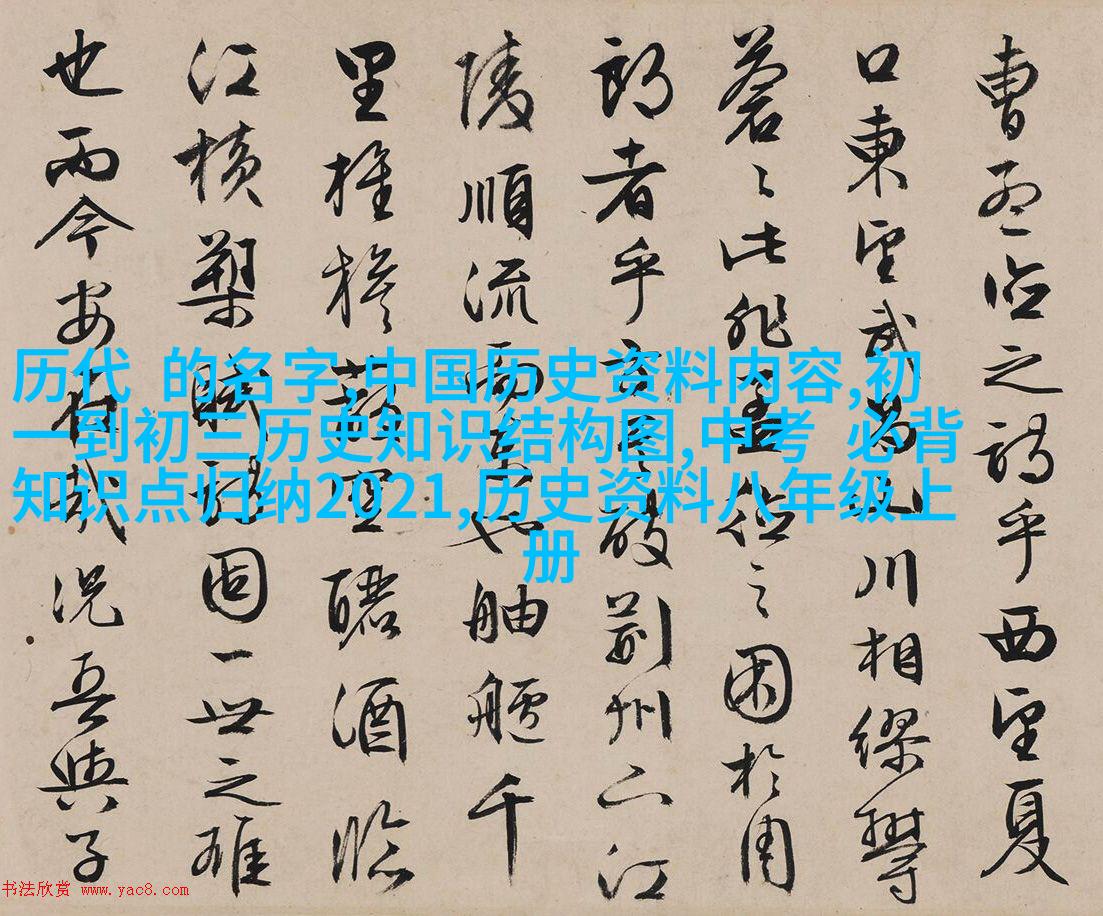 曹孟德之詩乎西望夏
口東望武昌山川相繆鬱
蒼〻此非孟德之困於周
郎者乎方其破荊州下江
陵順流而東也舳艫千
里旌旗蔽空釃酒臨
江橫槊賦詩固一世之雄
也而今安在哉況吾與子
历代 的名字,中国历史资料内容,初
一到初三历史知识结构图,中考 必背
知识点归纳2021,历史资料八年级上
册
书法欣赏 www.yac8.com